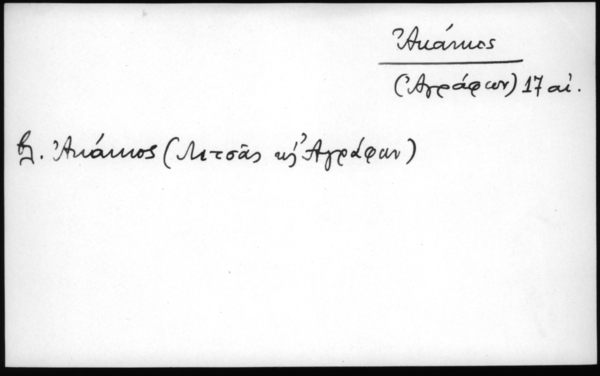 Ἀκάκιος
(Ἀγράφων) 17 αἰ.
βλ. Ἀκάκιος (Λιτσᾶς κ Ἀγράφων)